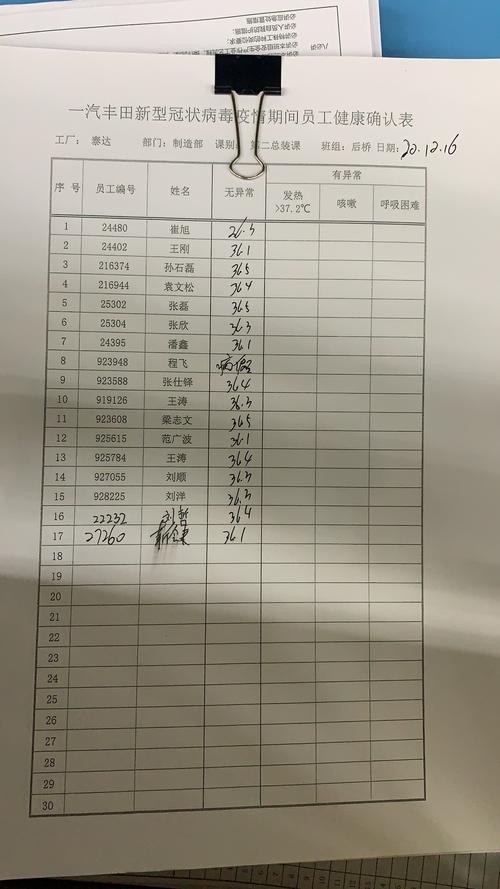 一汽丰田新型冠状病毒疫情期间员工健康确认表
工厂： 泰达 部门：制造部 课别： 第二总装课 班组：后桥 日期：20.12.16
序号 员工编号 姓名 无异常 有异常
发热>37.2℃ 咳嗽 呼吸困难
1 24480 崔旭 36.3
2 24402 王刚 36.1
3 216374 孙石磊 36.5
4 216944 袁文松 36.4
5 25302 张磊 36.5
6 25304 张欣 36.3
7 24395 潘鑫 36.1
8 923948 程飞 病假
9 923588 张仕铎 36.4
10 919126 王涛 36.3
11 923608 梁志文 36.5
12 925615 范广波 36.1
13 925784 王涛 36.4
14 927055 刘顺 36.3
15 928225 刘洋 36.3
16 22232 刘哲 36.4
17 27260 36.1
18
19
20
21
22
23
24
25
26
27
28
29
30